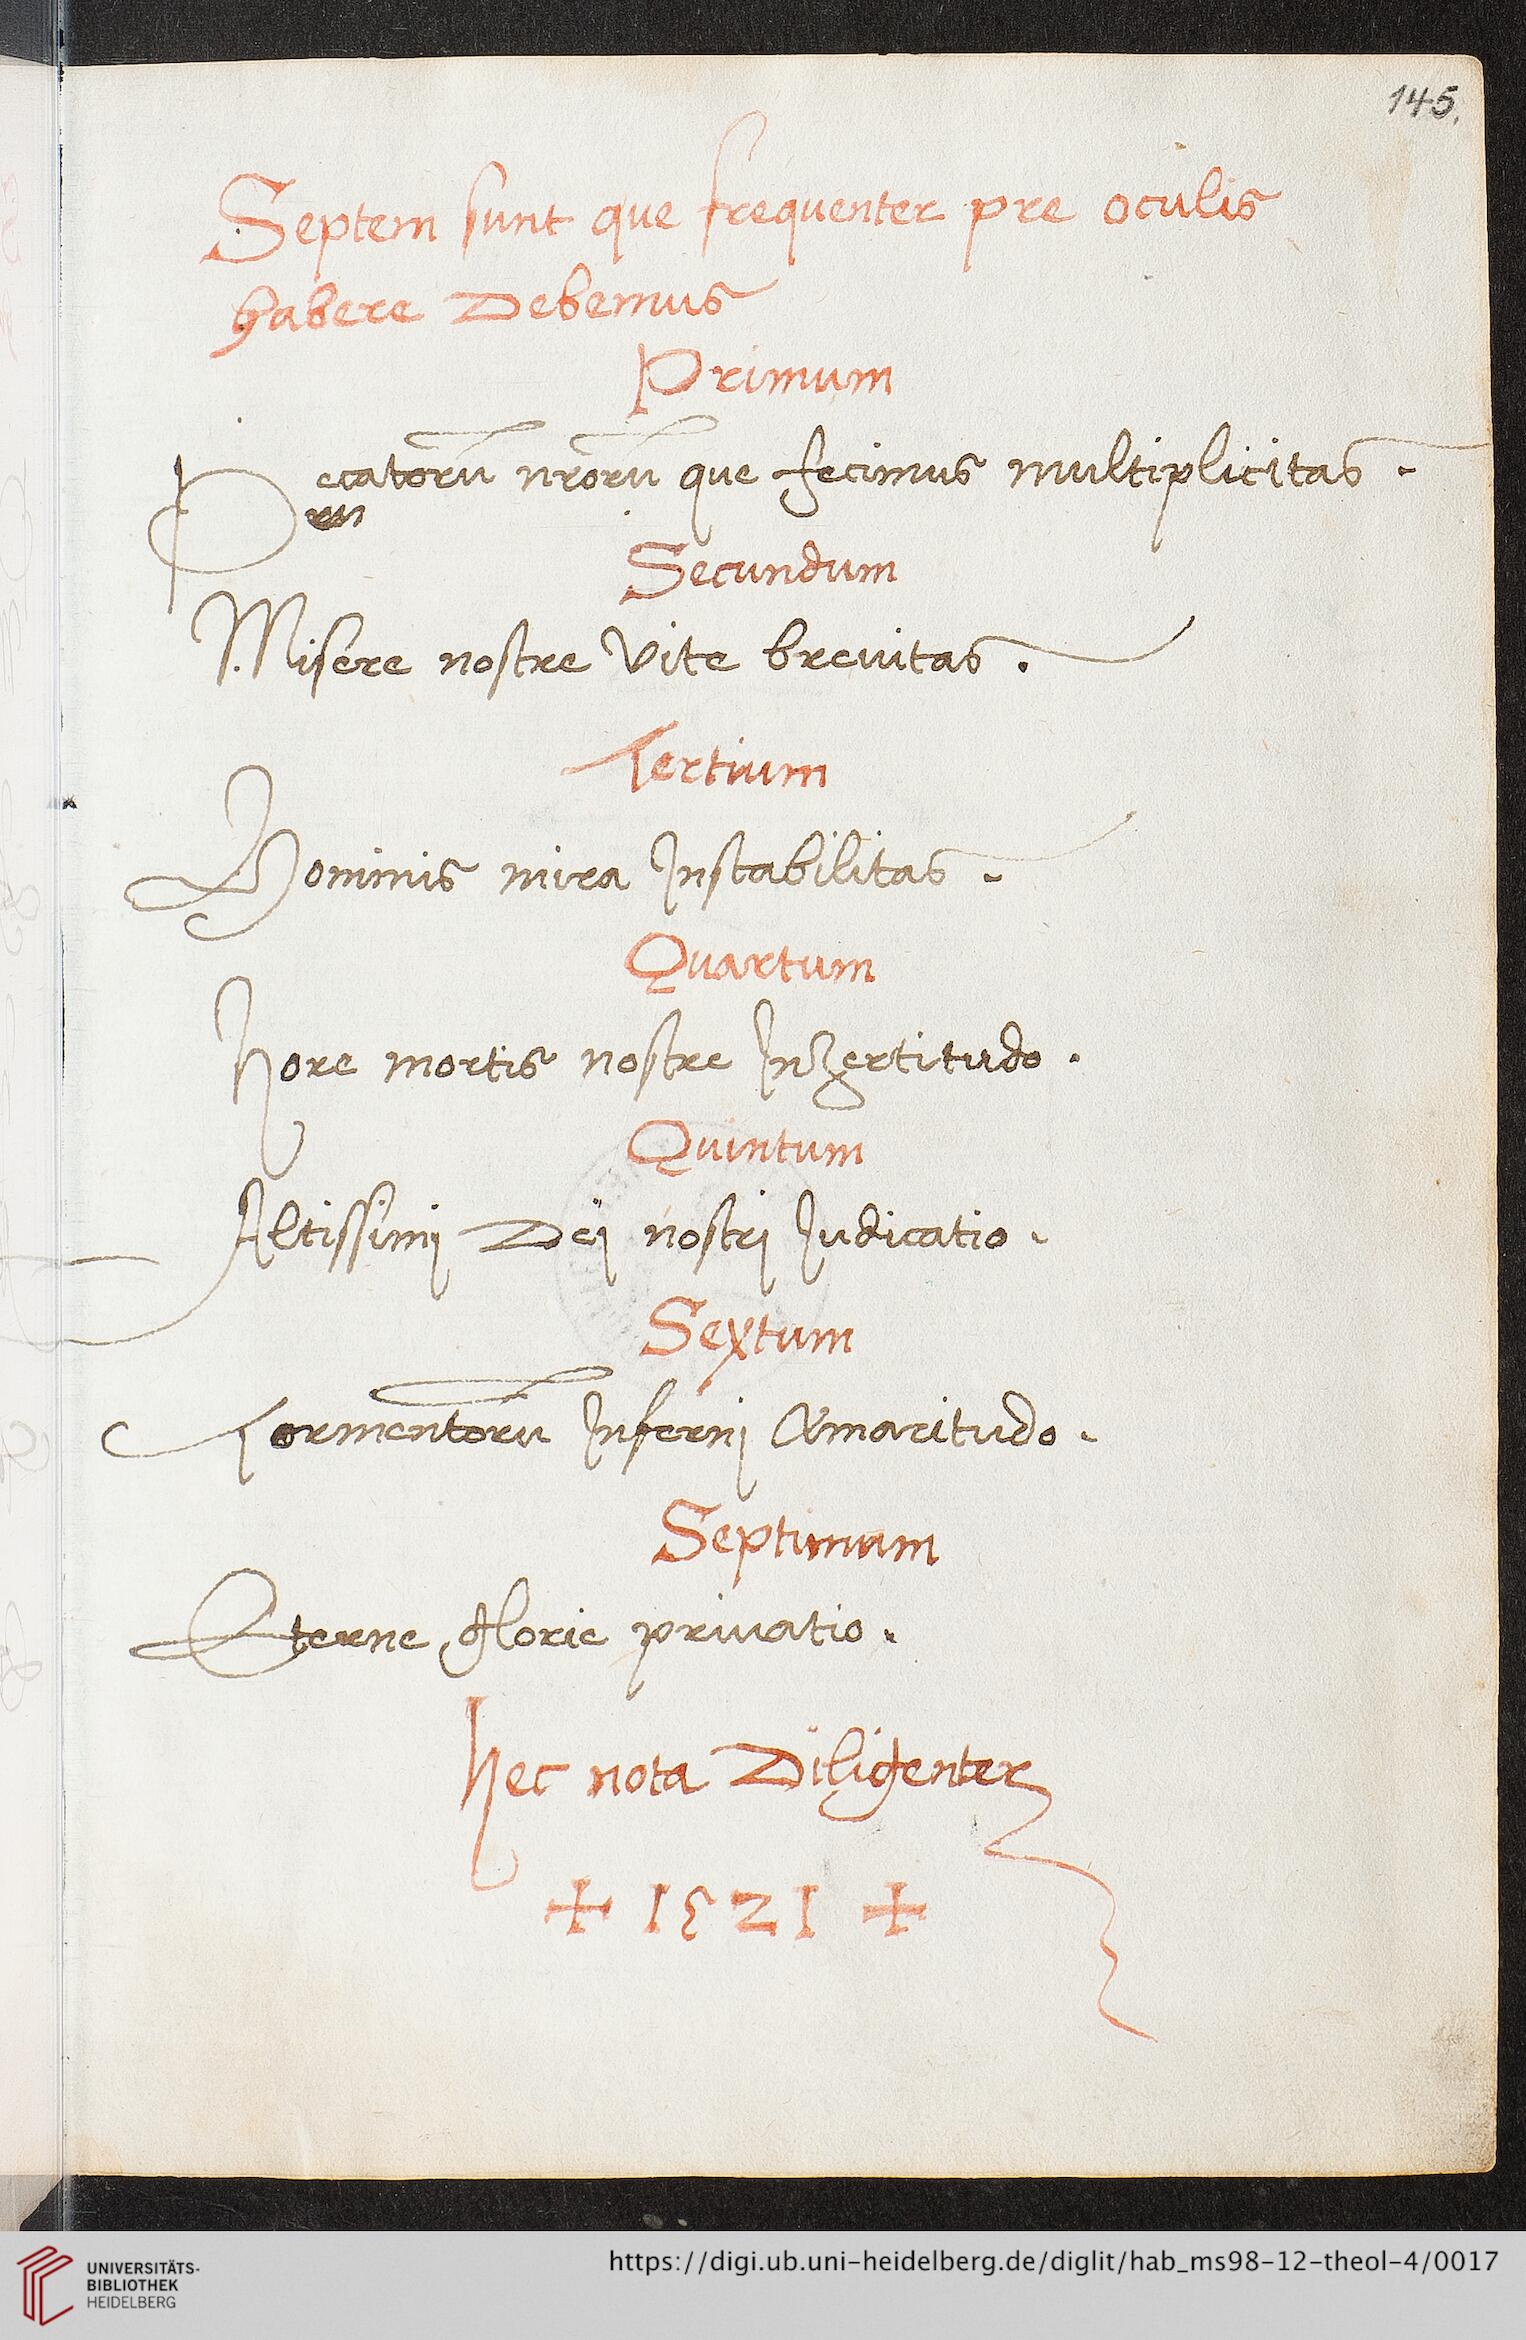 145.
Septem sunt que frequenter pre oculis
habere Debemus
Primum
Peccatorū nr̄orū que fecimus multiplicitas .
Secundum
Misere nostre vite breuitas .
Tertium
Hominis mira Instabilitas .
Quartum
Hore mortis nostre InZertitudo .
Quintum
Altissimj Dej nostrj Judicatio .
Sextum
Tormentorū Infernj Amaritudo .
Septimum
Eterne glorie priuatio .
hec nota Diligenter
+ 1521 +
UNIVERSITÄTS-
BIBLIOTHEK
HEIDELBERG
https://digi.ub.uni-heidelberg.de/diglit/hab_ms98-12-theol-4/0017